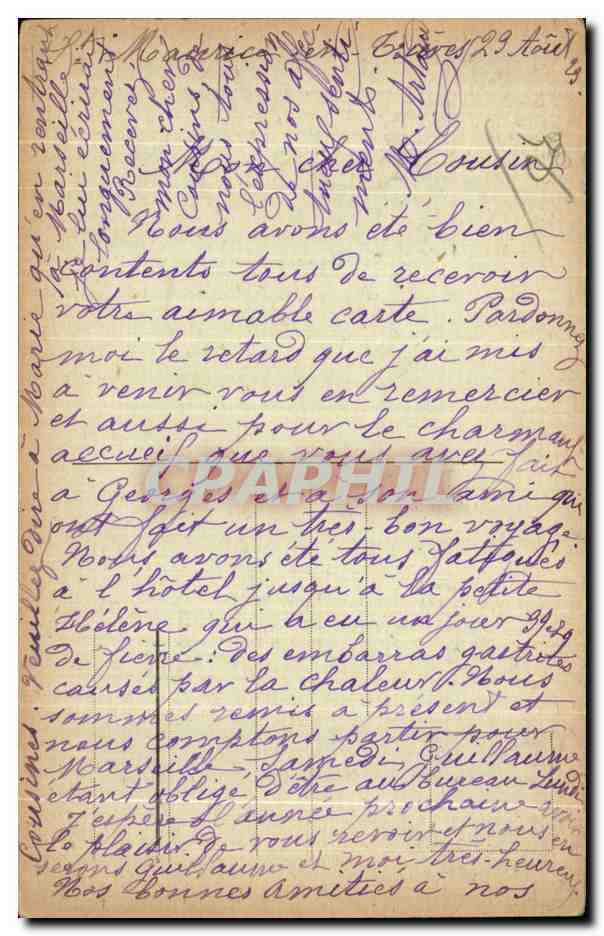 St Maurice en Trièves 29 Août
Mon cher Cousin
Nous avons été bien
contents tous de recevoir
votre aimable carte. Pardonnez
moi le retard que j'ai mis
à venir vous en remercier
et aussi pour le charmant
accueil que vous avez fait
à Georges et à son ami qui
ont fait un très-bon voyage.
Nous avons été tous fatigués
à l'hôtel jusqu'à la petite
Hélène qui a eu un jour 39
de fièvre: des embarras gastriques
causés par la chaleur. Nous
sommes remis à présent et
nous comptons partir pour
Marseille, Samedi, Guillaume
étant obligé d'être au bureau Lundi
J'espère l'année prochaine avoir
le plaisir de vous revoir et nous en
serons Guillaume et moi très-heureux
Nos bonnes amitiés à nos
Cousines. Veuillez dire à Marie qu'en rentrant
à Marseille
je lui écrirai
longuement
Recevez
mon cher
Cousin de
nous tous
l'expression
de nos affec
tueux senti
ments.
CPARPHIL